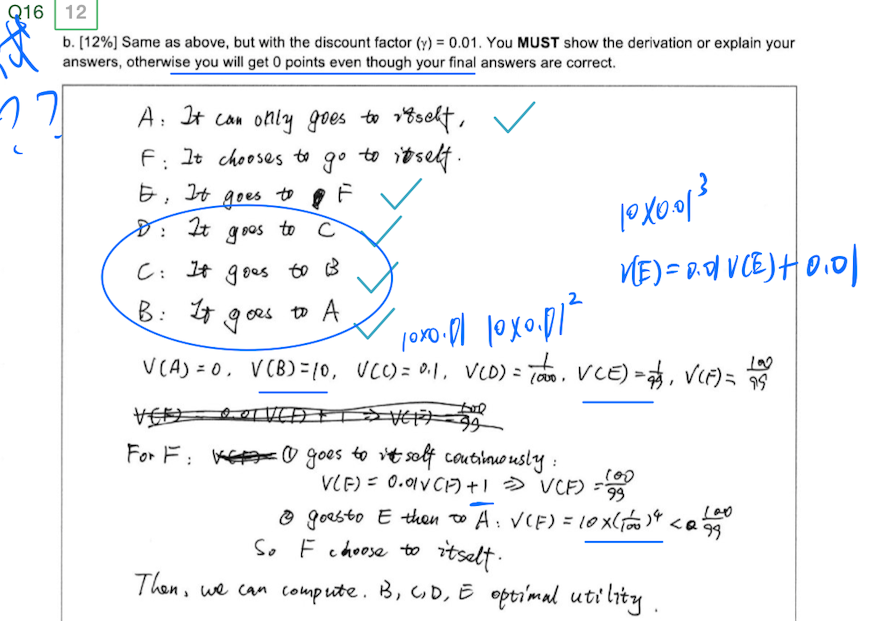 Q16 12
b. [12%] Same as above, but with the discount factor (γ) = 0.01. You MUST show the derivation or explain your
answers, otherwise you will get 0 points even though your final answers are correct.
??
A: It can only goes to itself,
F: It chooses to go to itself.
E, It goes to F
D: It goes to C
C: It goes to B
B: It goes to A
10×0.01³
V(E) = 0.01 V(E) + 0.01
10×0.01 10×0.01²
V(A) = 0, V(B) = 10, V(C) = 0.1, V(D) = 1/1000, V(E) = 1/99, V(F) = 100/99
V(F) = 0.01 V(F) + 1 ⇒ V(F) = 100/99
For F: ① goes to itself continuously:
V(F) = 0.01 V(F) + 1 ⇒ V(F) = 100/99
② goes to E then to A: V(F) = 10×(1/100)⁴ < 100/99
So F choose to itself.
Then, we can compute. B, C, D, E optimal utility.